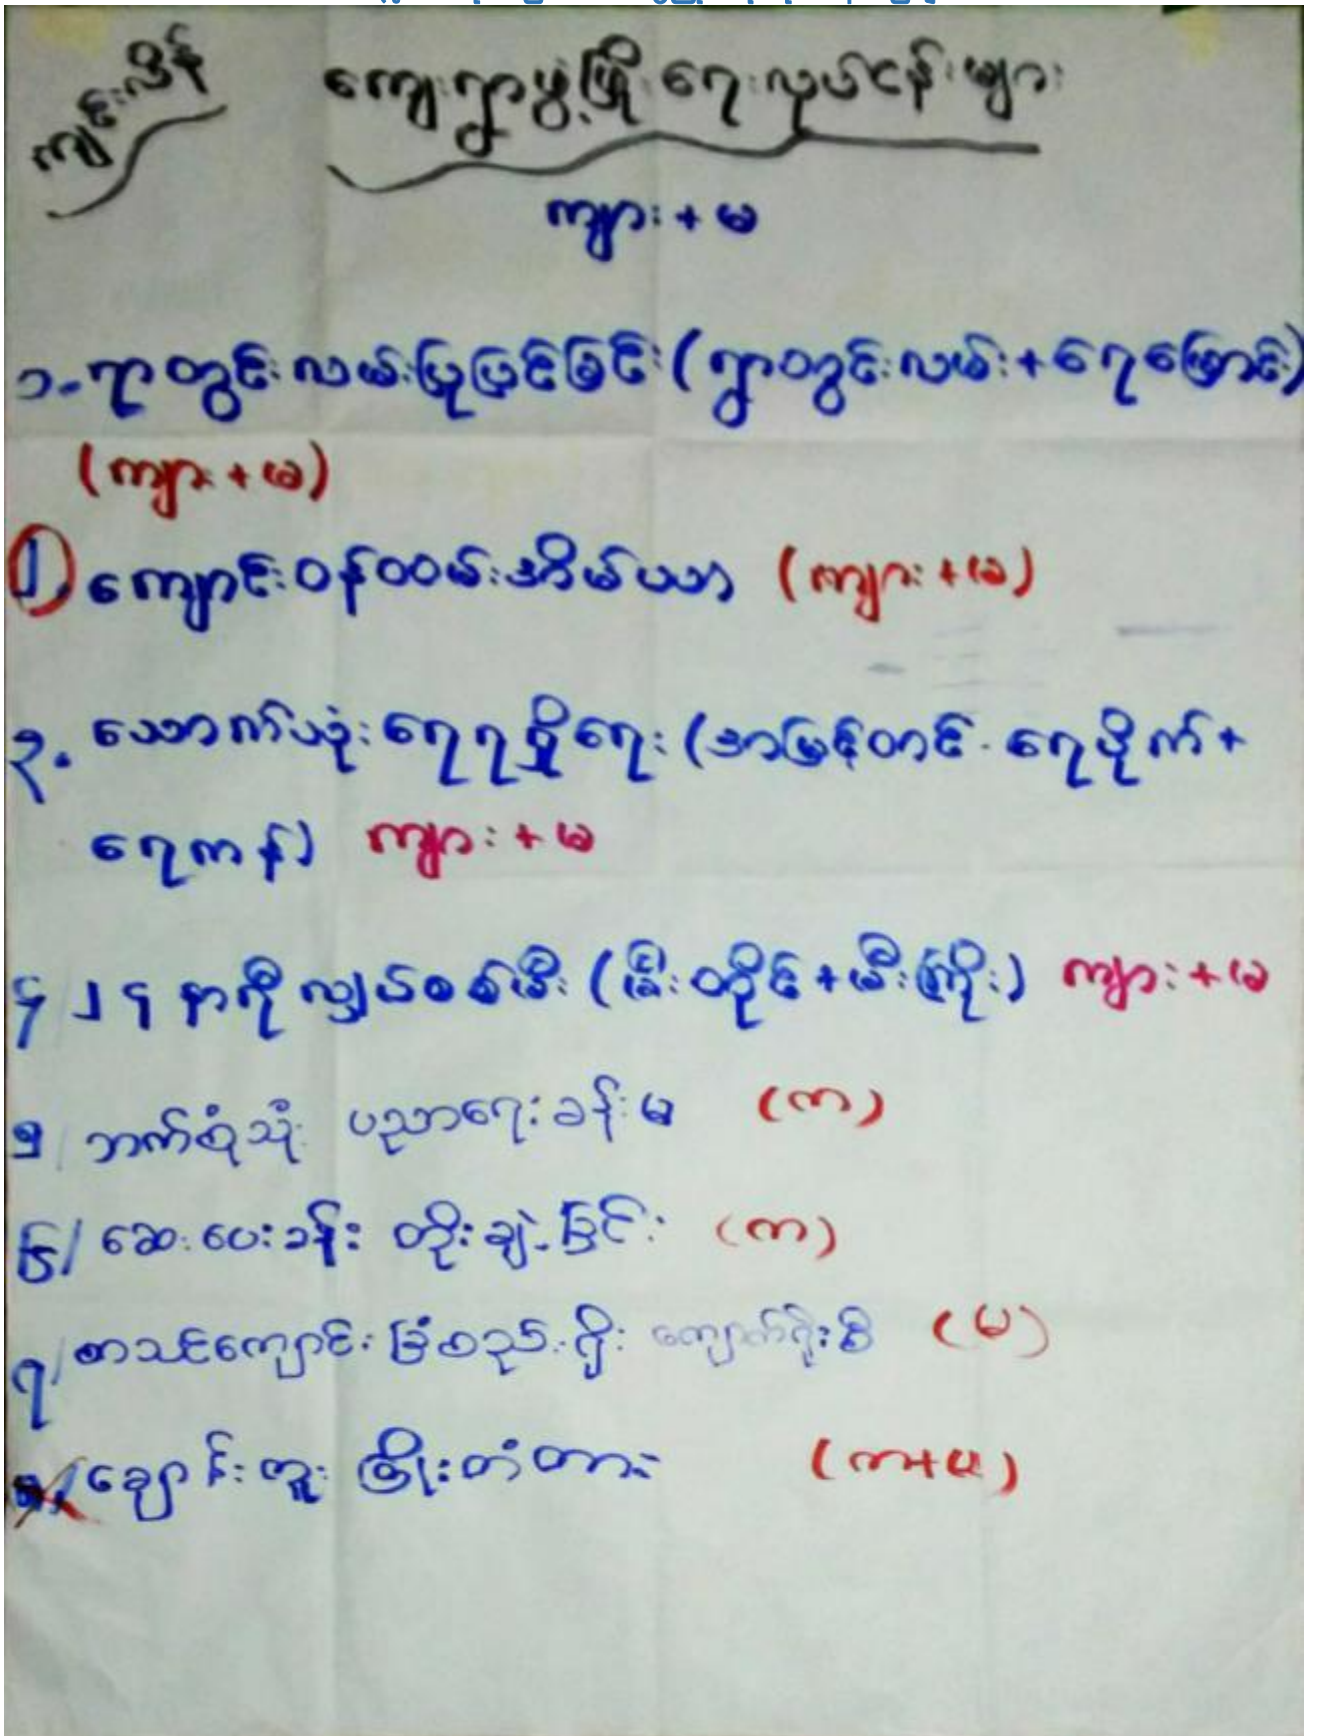 ကျင်းလိန်
ကျေးရွာဖွံ့ဖြိုးရေးလုပ်ငန်းများ
ကျား + မ
၁. ရွာတွင်းလမ်းပြုပြင်ခြင်း (ရွာတွင်းလမ်း + ရေမြောင်း)
(ကျား + မ)
၂. ကျောင်းဝန်ထမ်းအိမ်ယာ (ကျား + မ)
၃. သောက်သုံးရေရရှိရေး (အမြင့်တင် ရေပိုက် +
ရေကန်) ကျား + မ
၄ ၂၄ နာရီလျှပ်စစ်မီး (မီးတိုင် + မီးကြိုး) ကျား + မ
၅/ ဘက်စုံသုံး ပညာရေးခန်းမ (က)
၆/ ဆေးပေးခန်း တိုးချဲ့ခြင်း (က)
၇/ စာသင်ကျောင်း ခြံစည်းရိုး ကျောက်ရိုးစီ (မ)
ချောင်းကူး ကြိုးတံတား (က+မ)